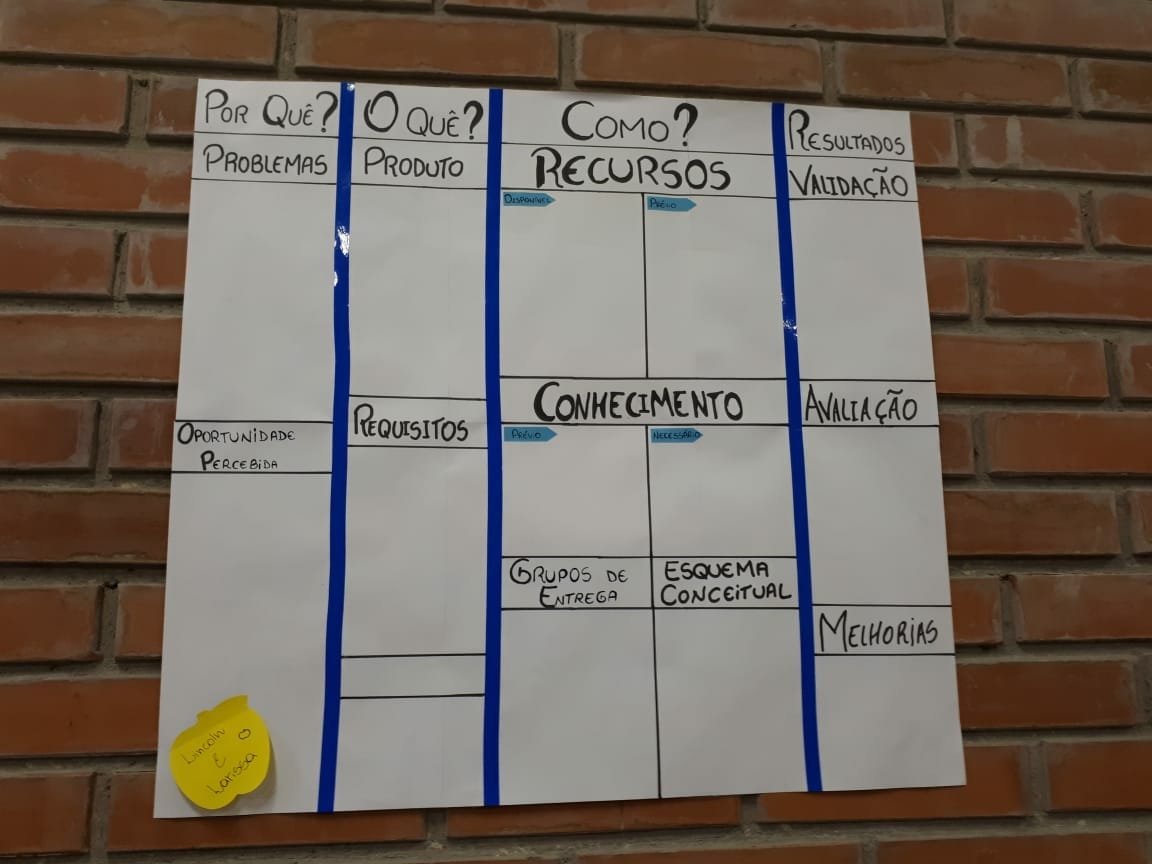 POR QUÊ?
PROBLEMAS
OPORTUNIDADE
PERCEBIDA
Lincoln
E
Larissa
O QUÊ?
PRODUTO
REQUISITOS
COMO?
RECURSOS
DISPONÍVEL
PRÉVIO
CONHECIMENTO
PRÉVIO
NECESSÁRIO
GRUPOS DE
ENTREGA
ESQUEMA
CONCEITUAL
RESULTADOS
VALIDAÇÃO
AVALIAÇÃO
MELHORIAS